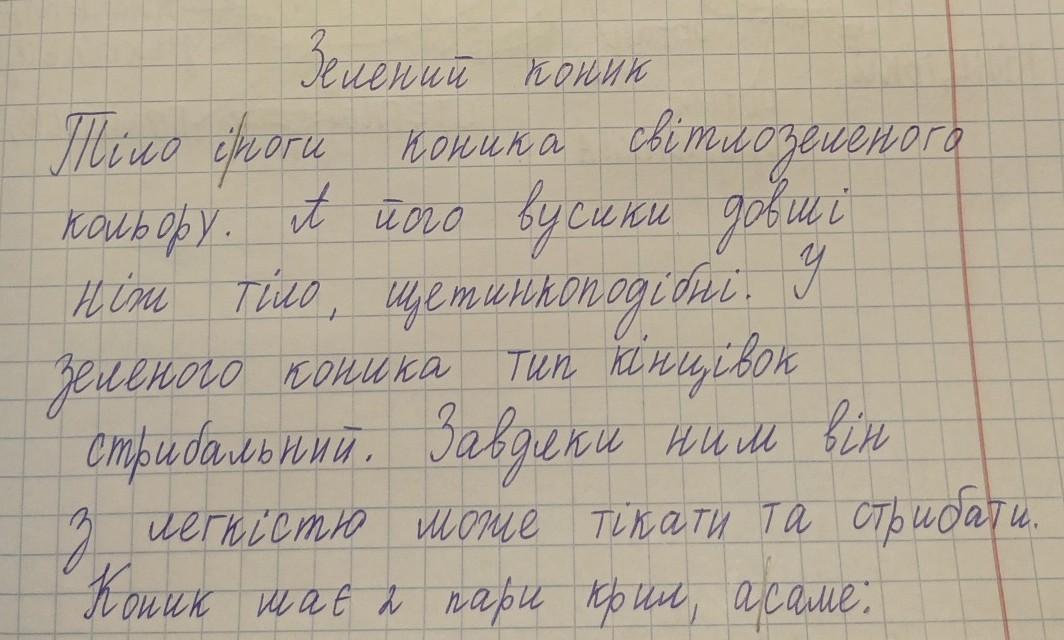 Зелений коник
Тіло і/ноги коника світлозеленого
кольору. А його вусики довші
ніж тіло, щетинкоподібні. У
зеленого коника тип кінцівок
стрибальний. Завдяки ним він
з легкістю може тікати та стрибати.
Коник має 2 пари крил, а/саме: